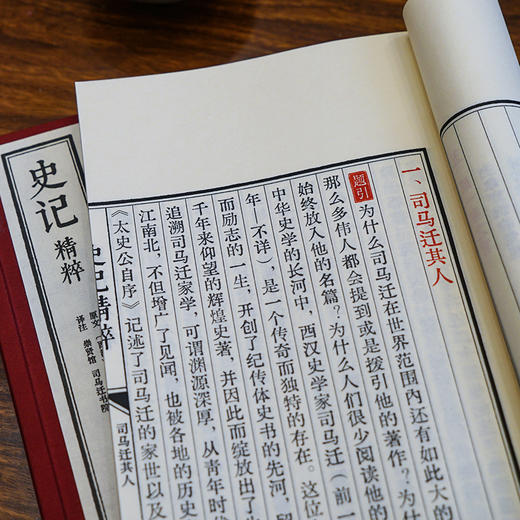 一、司马迁其人
题引
为什么司马迁在世界范围内还有如此大的
那么多伟人都会提到或是援引他的著作？为什
始终放入他的名篇？为什么人们很少阅读他的
中华史学的长河中，西汉史学家司马迁（前一
年—不详），是一个传奇而独特的存在。这位
而励志的一生，开创了纪传体史书的先河，留
千年来仰望的辉煌史著，并因此而绽放出了
追溯司马迁家学，可谓渊源深厚，从青年时
江南北，不但增广了见闻，也被各地的历史
《太史公自序》记述了司马迁的家世以及
史记精粹
司马迁其人
史记
精粹
原文
译注
崇贤馆
司马迁书院